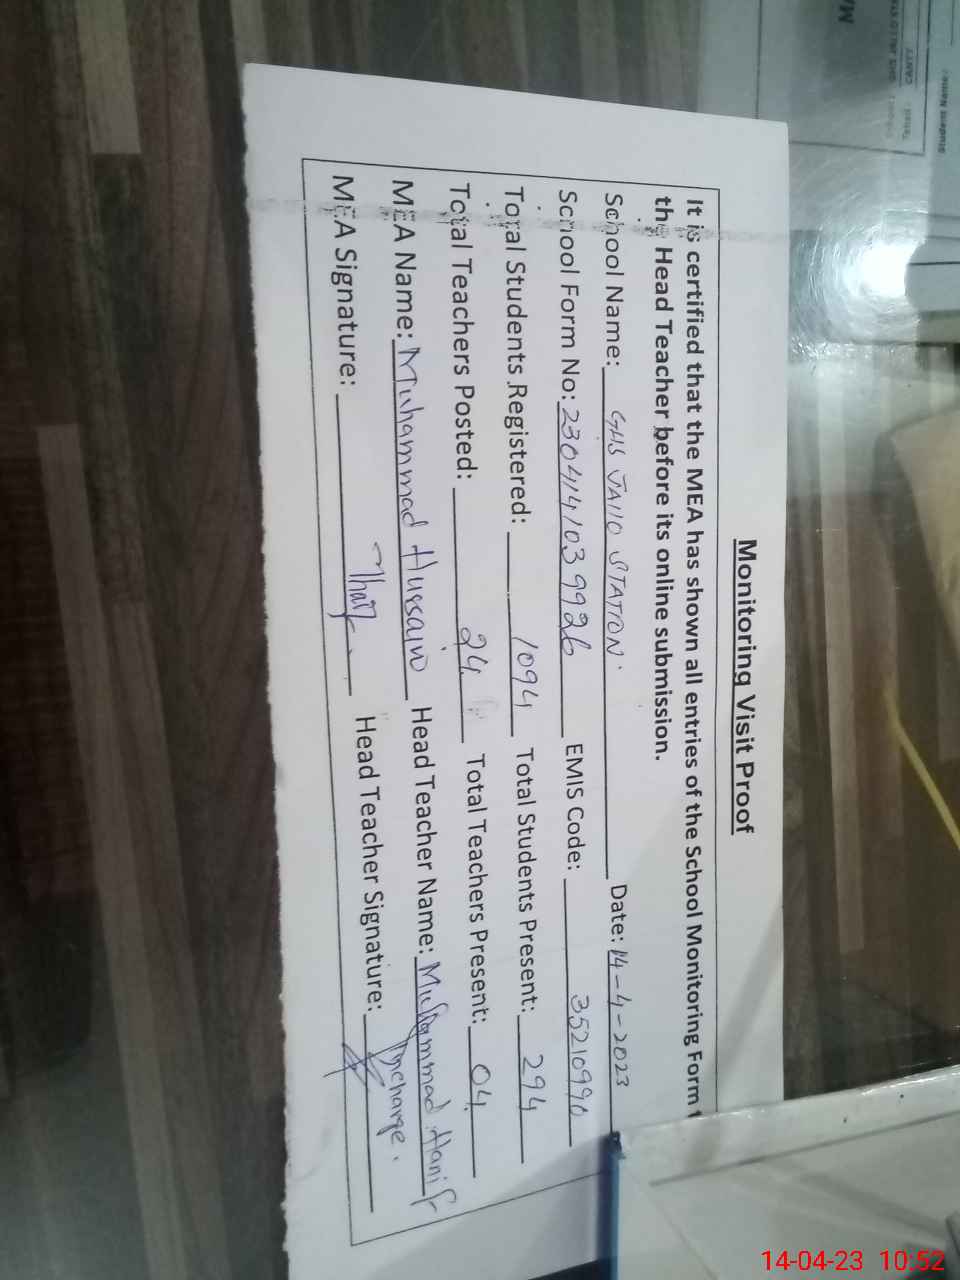 Monitoring Visit Proof
It is certified that the MEA has shown all entries of the School Monitoring Form
the Head Teacher before its online submission.
School Name: GHS JALLO STATION. Date: 14-4-2023
School Form No: 2304141039926 EMIS Code: 35210990
Total Students Registered: 1094 Total Students Present: 294
Total Teachers Posted: 24 Total Teachers Present: 04
MEA Name: Muhammad Hussain Head Teacher Name: Muhammad Hanif
Incharge.
MEA Signature: Head Teacher Signature:
14-04-23 10:52